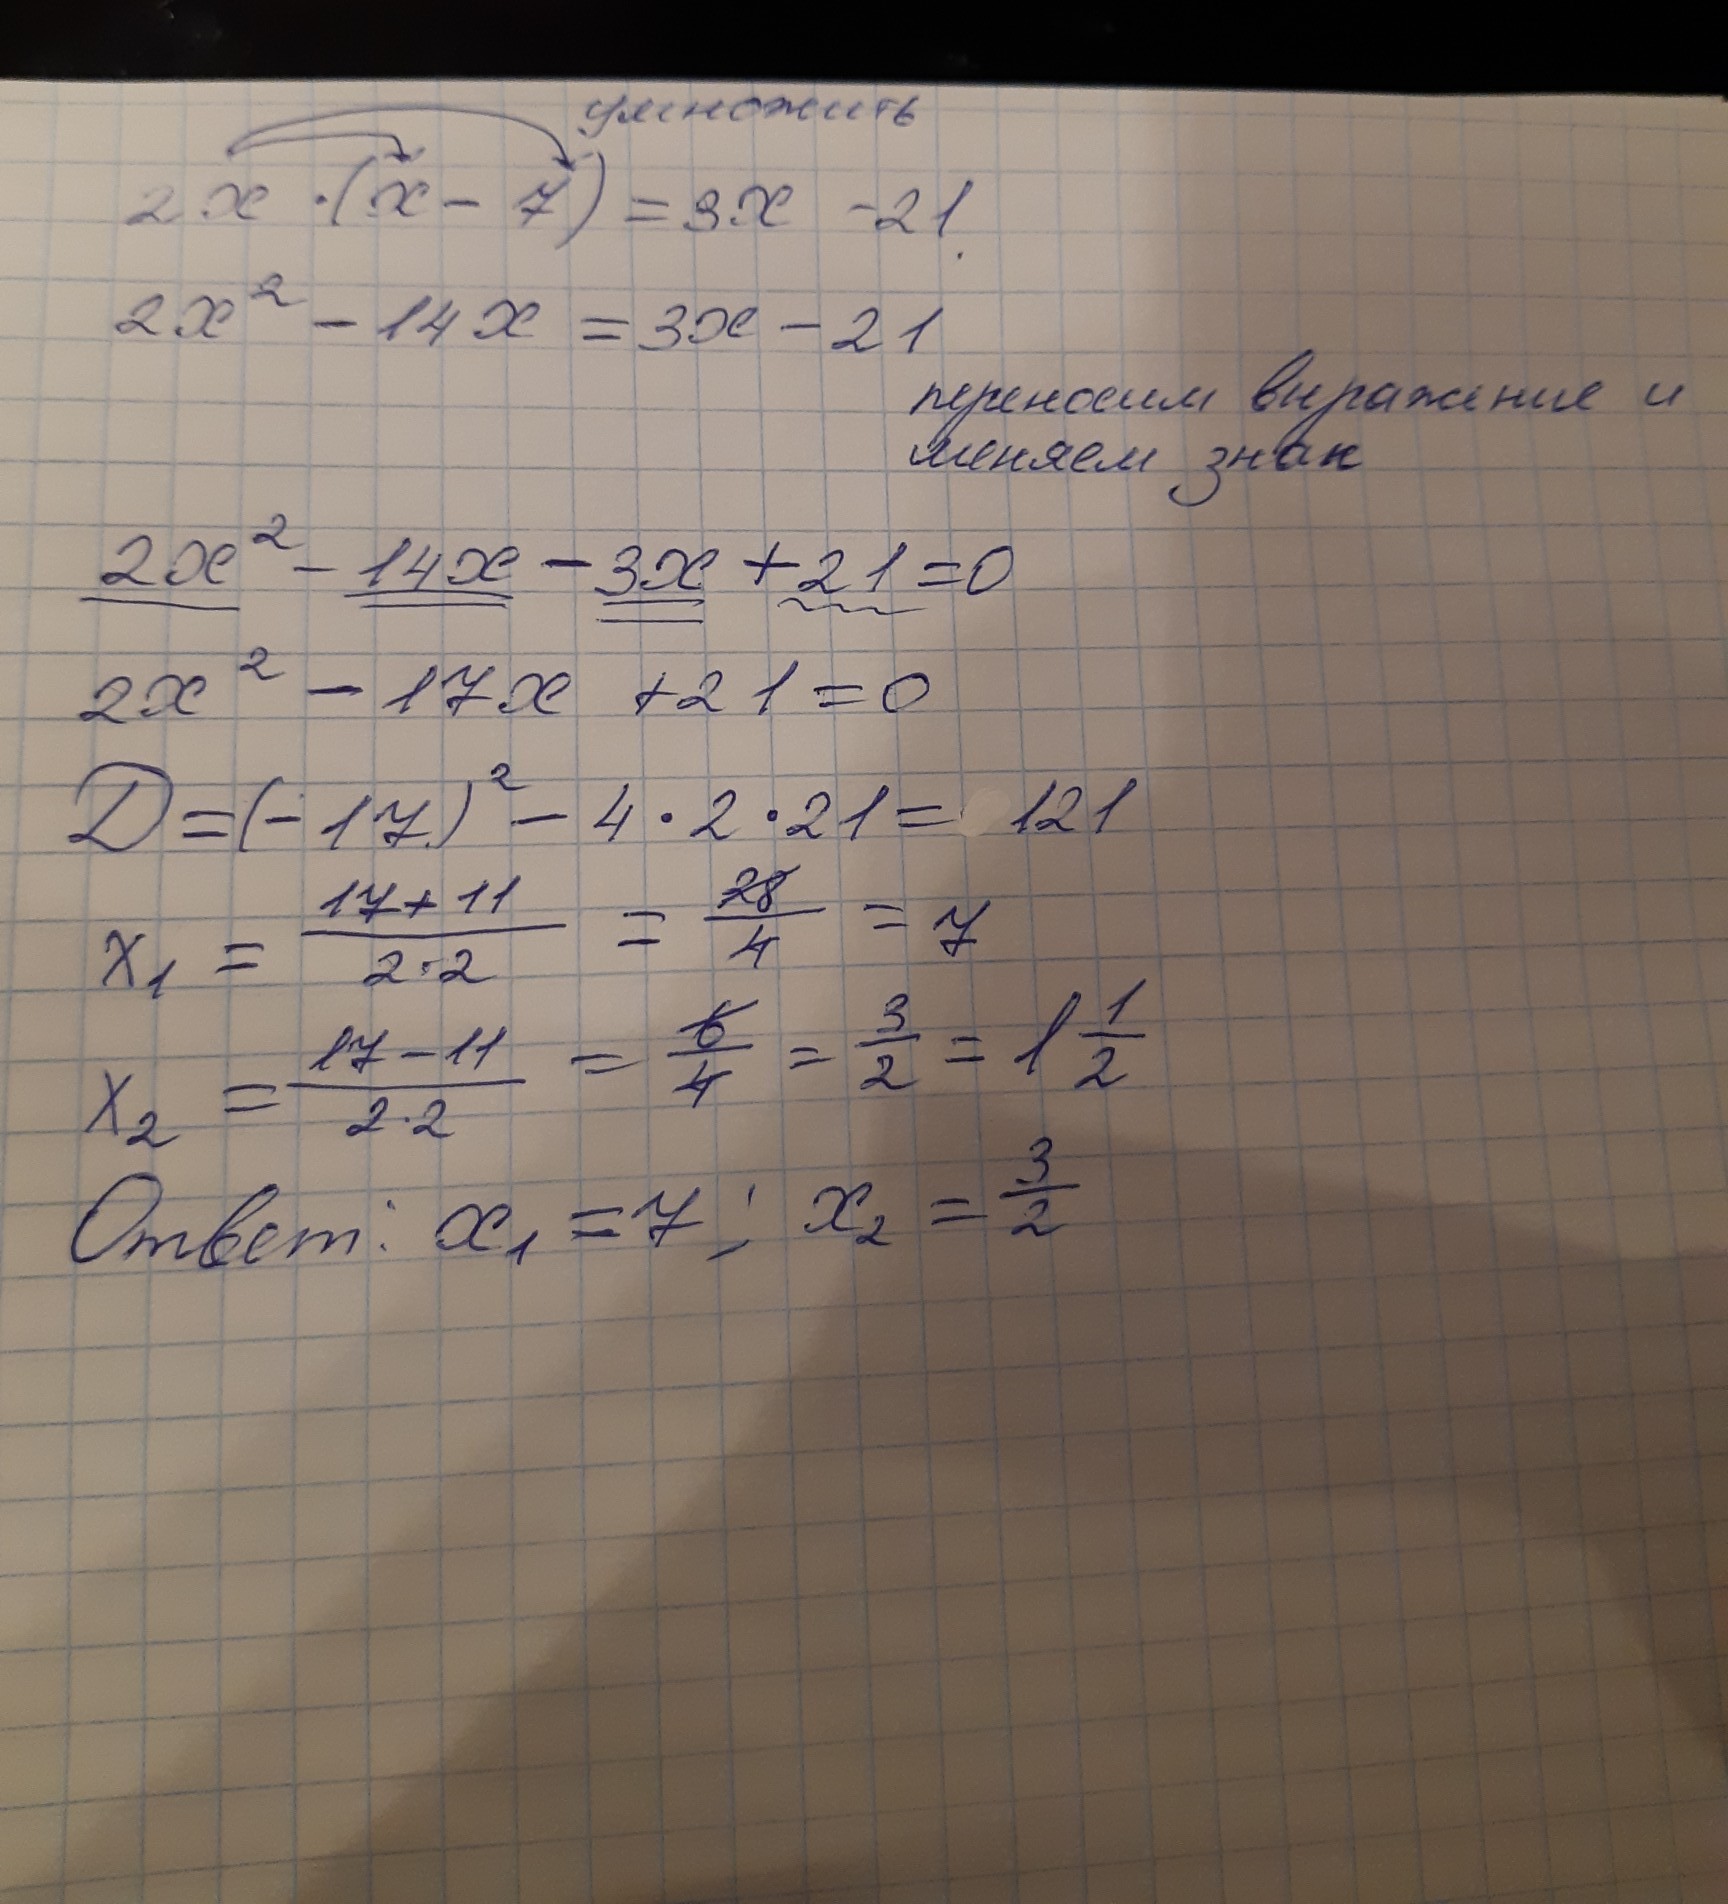 умножить
2x · (x - 7) = 3x - 21
2x² - 14x = 3x - 21
переносим выражение и
меняем знак
2x² - 14x - 3x + 21 = 0
2x² - 17x + 21 = 0
D = (-17)² - 4 · 2 · 21 = 121
x₁ = (17 + 11)/(2·2) = 28/4 = 7
x₂ = (17 - 11)/(2·2) = 6/4 = 3/2 = 1 1/2
Ответ: x₁ = 7; x₂ = 3/2